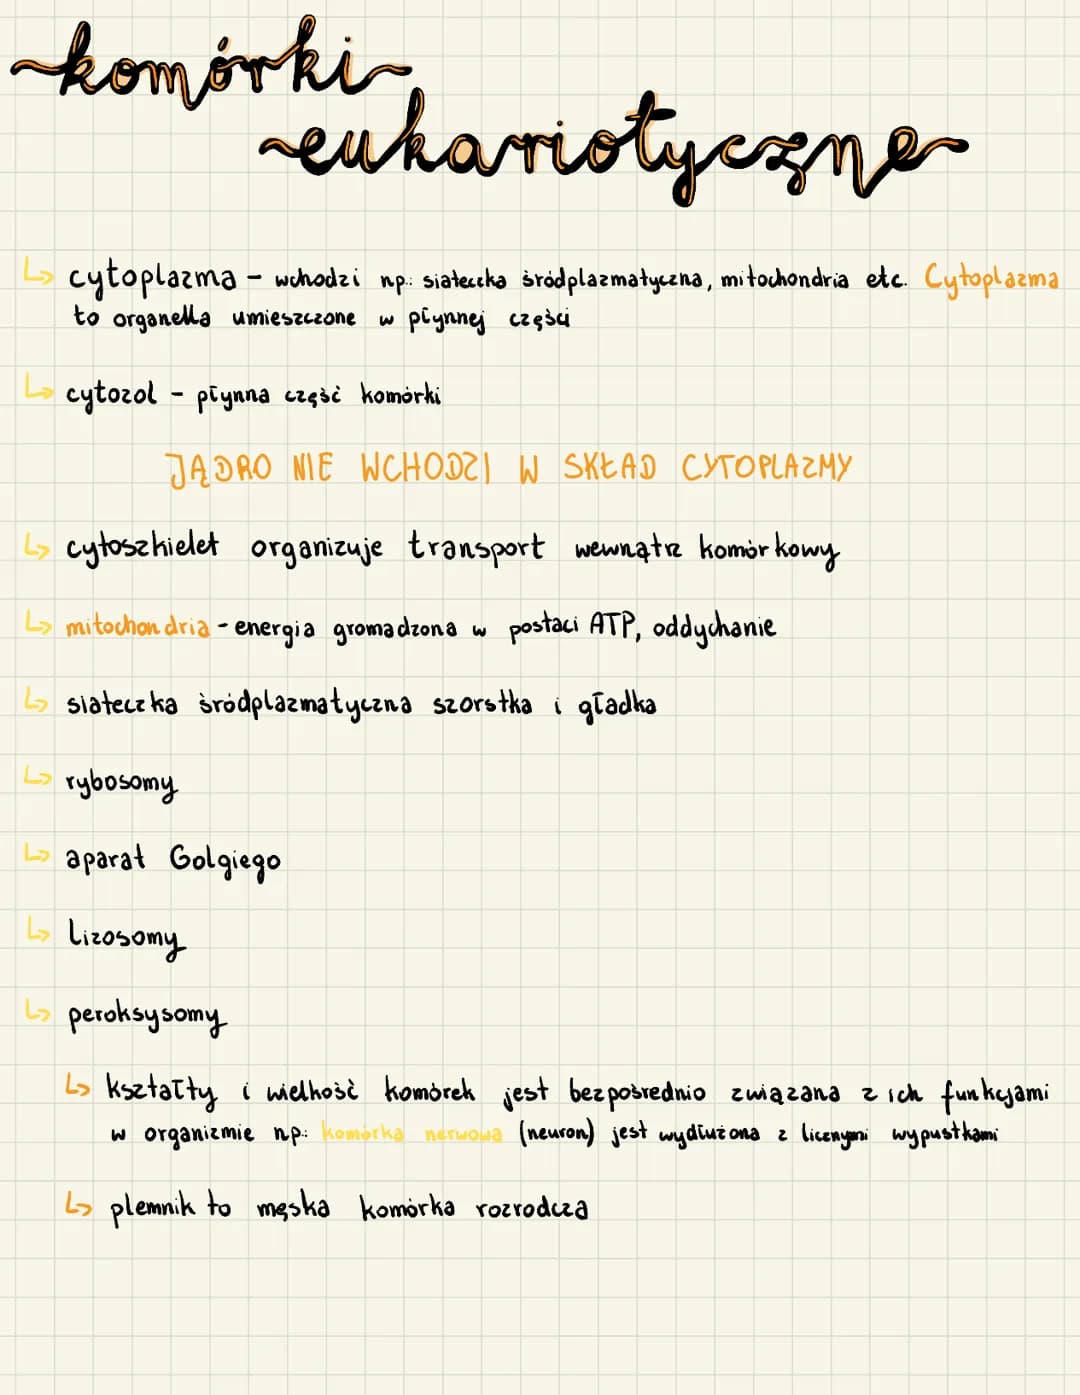 komórki
eukariotyczne
↳ cytoplazma - wchodzi np.: siateczka śródplazmatyczna, mitochondria etc. Cytoplazma
to organella umieszczone w płynnej części
↳ cytozol - płynna część komórki
JĄDRO NIE WCHODZI W SKŁAD CYTOPLAZMY
↳ cytoszkielet organizuje transport wewnątrz komórkowy
↳ mitochondria - energia gromadzona w postaci ATP, oddychanie
↳ siateczka śródplazmatyczna szorstka i gładka
↳ rybosomy
↳ aparat Golgiego
↳ lizosomy
↳ peroksysomy
↳ kształty i wielkość komórek jest bezpośrednio związana z ich funkcjami
w organizmie np.: komórka nerwowa (neuron) jest wydłużona z licznymi wypustkami
↳ plemnik to męska komórka rozrodcza